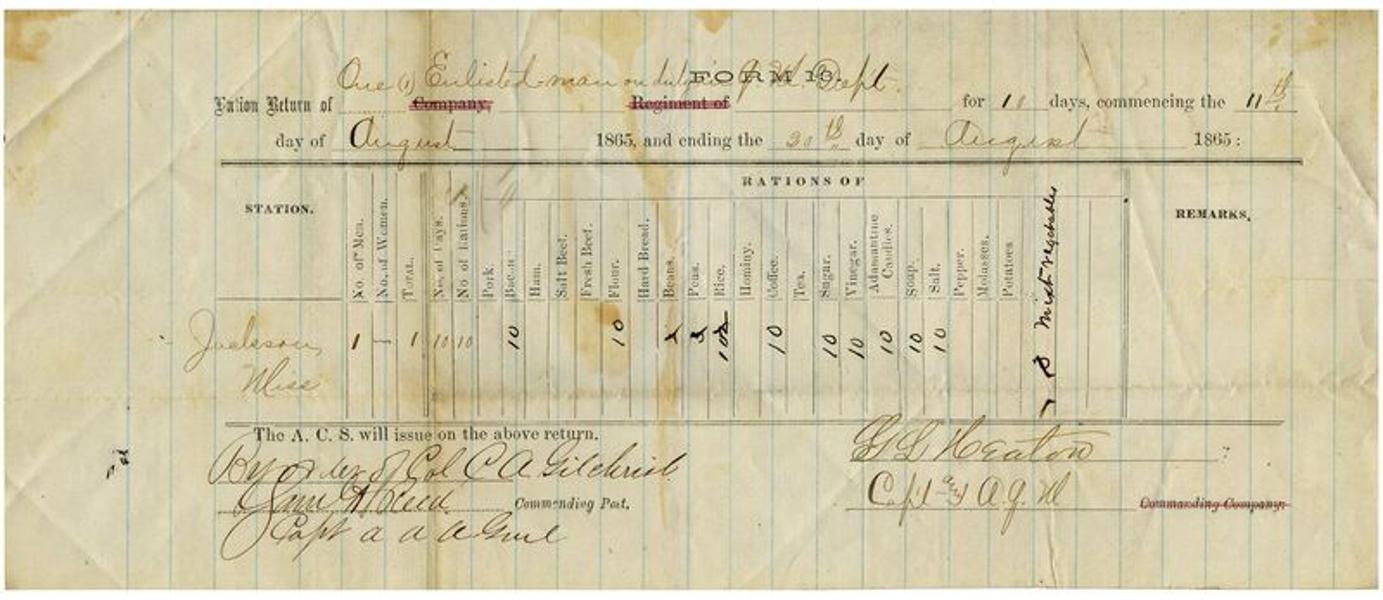 FORM 13.
One (1) Enlisted man on duty in Q. M. Dept.
Ration Return of Company, Regiment of for 10 days, commencing the 11th
day of August 1865, and ending the 20th day of August 1865:
RATIONS OF
STATION. No. of Men. No. of Women. Total. No. of Days. No of Rations. Pork. Bacon. Ham. Salt Beef. Fresh Beef. Flour. Hard Bread. Beans. Peas. Rice. Hominy. Coffee. Tea. Sugar. Vinegar. Adamantine Candles. Soap. Salt. Pepper. Molasses. Potatoes Mixt vegetables REMARKS.
Jackson 1 — 1 10 10 10 10 10 10 10 10 10 10 10
Miss
The A. C. S. will issue on the above return.
By order of Col C A Gilchrist G L Heaton
Commanding Post. Capt & A Q M Commanding Company.
Capt a a a Genl